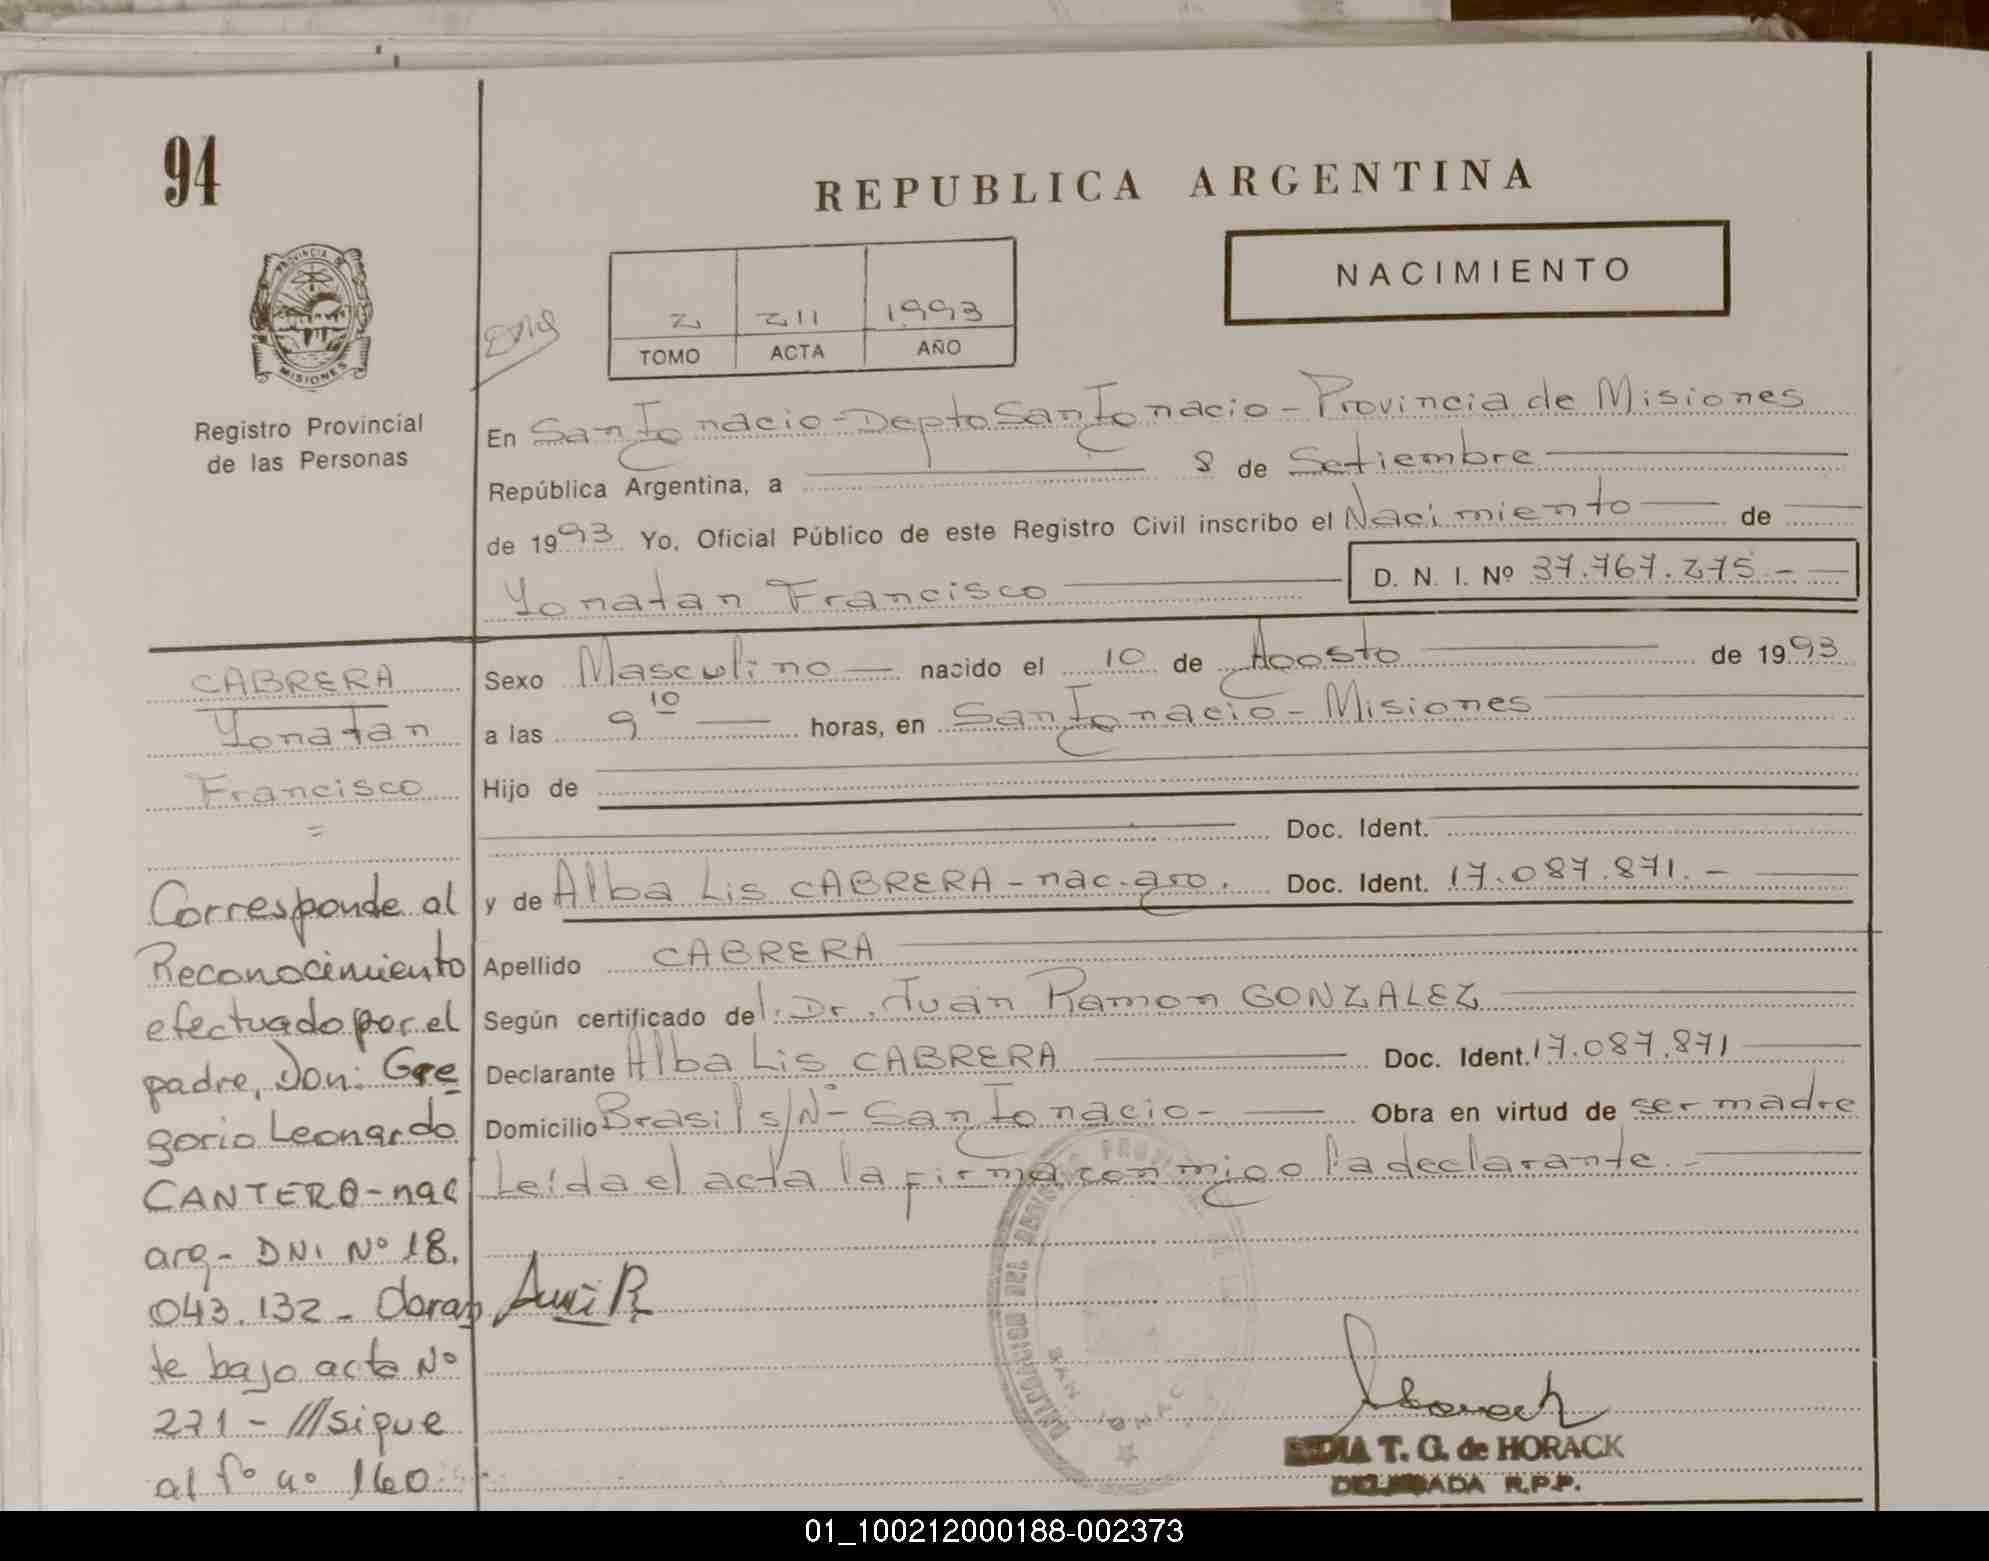 94
REPUBLICA ARGENTINA
NACIMIENTO
2 211 1993
TOMO ACTA AÑO
PROVINCIA DE
MISIONES
Registro Provincial
de las Personas
En San Ignacio - Depto San Ignacio - Provincia de Misiones
República Argentina, a 8 de Setiembre
de 1993 Yo, Oficial Público de este Registro Civil inscribo el Nacimiento de
Yonatan Francisco D. N. I. Nº 37.767.275.-
CABRERA
Yonatan
Francisco
=
Sexo Masculino nacido el 10 de Agosto de 1993
a las 9 10 horas, en San Ignacio - Misiones
Hijo de
Doc. Ident.
y de Alba Lis CABRERA - nac. arg. Doc. Ident. 17.087.871.-
Apellido CABRERA
Según certificado del Dr. Juan Ramon GONZALEZ
Declarante Alba Lis CABRERA Doc. Ident. 17.087.871
Domicilio Brasil s/Nº - San Ignacio - Obra en virtud de ser madre
Leída el acta la firma conmigo la declarante.-
Corresponde al
Reconocimiento
efectuado por el
padre, Don: Gre
gorio Leonardo
CANTERO - nac
arg - DNI Nº 18.
043.132 - Obran
te bajo acta Nº
271 - /// sigue
al fº nº 160
SAN IGNAC
T. G. de HORACK
DELEGADA R.P.P.
01_100212000188-002373